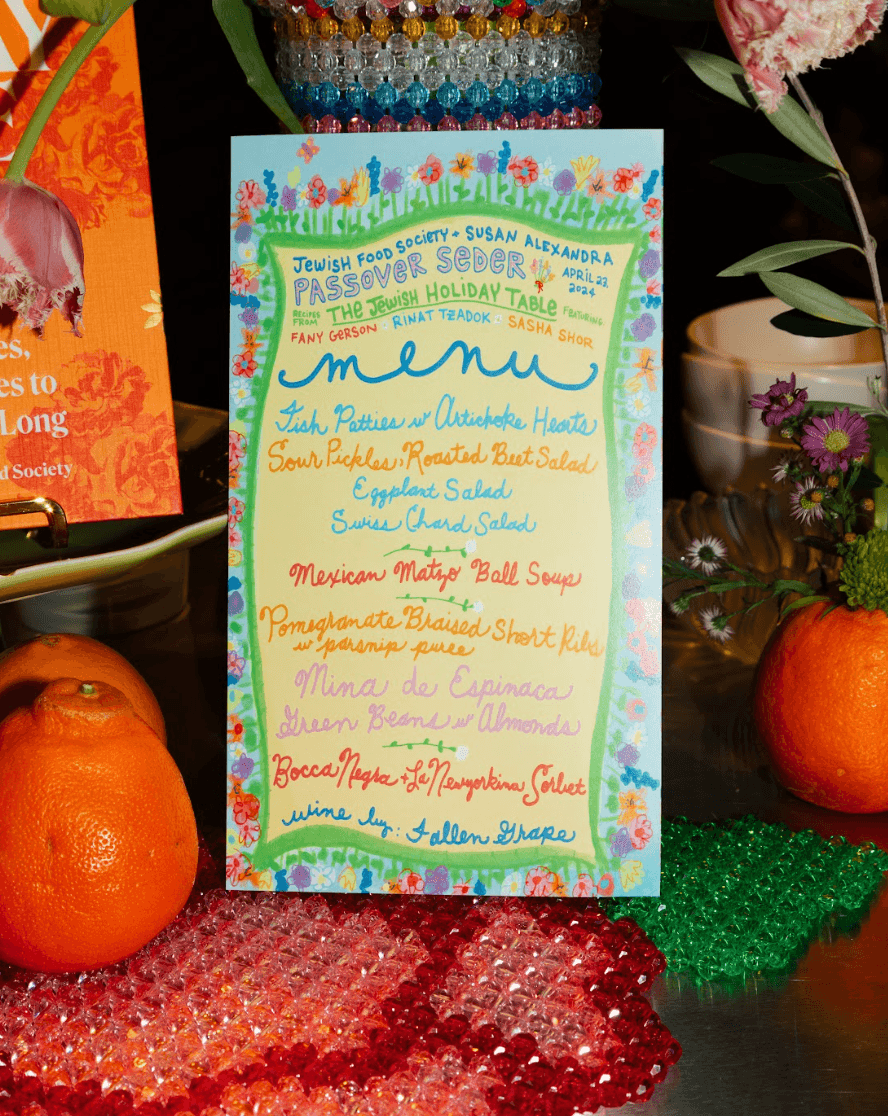 es,
es to
Long
d Society
JEWISH FOOD SOCIETY + SUSAN ALEXANDRA
PASSOVER SEDER
APRIL 23,
2024
RECIPES
FROM
THE JEWISH HOLIDAY TABLE
FEATURING
FANY GERSON RINAT TZADOK SASHA SHOR
menu
Fish Patties w Artichoke Hearts
Sour Pickles, Roasted Beet Salad
Eggplant Salad
Swiss Chard Salad
Mexican Matzo Ball Soup
Pomegranate Braised Short Ribs
w parsnip puree
Mina de Espinaca
Green Beans w Almonds
Bocca Negra + La Newyorkina Sorbet
wine by: Fallen Grape